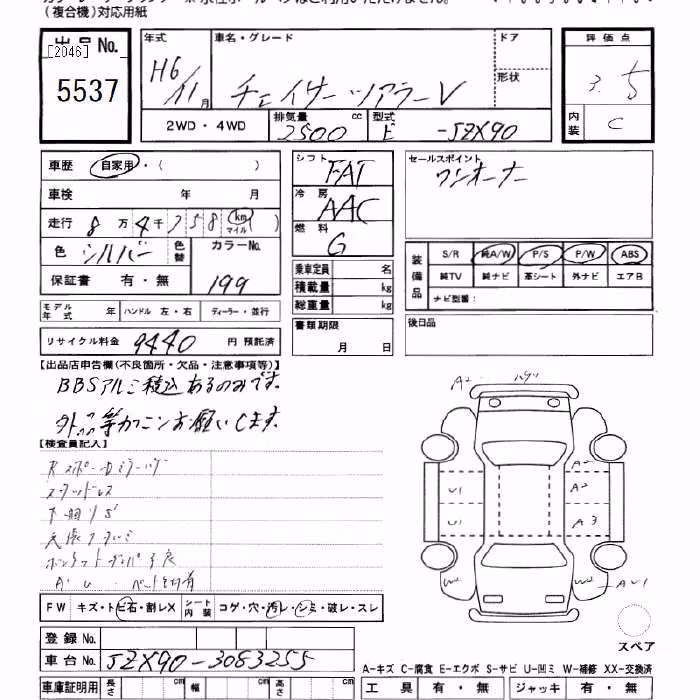 (複合機)対応用紙
出品No. [2046]
5537
年式 H6/11月
車名・グレード チェイサーツアラーV
ドア
形状
2WD・4WD
排気量 2500 cc
型式 E -JZX90
評価点 3.5
内装 C
車歴 自家用・( )
車検 年 月
走行 8万4千758 km マイル ( )
色 シルバー 色替
カラーNo. 199
保証書 有・無
シフト FAT
冷房 AAC
燃料 G
乗車定員 名
積載量 kg
総重量 kg
書類期限 月 日
セールスポイント
ワンオーナー
装備品 S/R 純A/W P/S P/W ABS
純TV 純ナビ 革シート 外ナビ エアB
ナビ型番:
後日品
モデル年式 年 ハンドル 左・右 ディーラー・並行
リサイクル料金 9440 円 預託済
【出品店申告欄(不良箇所・欠品・注意事項等)】
BBSアルミ積込あるのみです。
お願いします。
【検査員記入】
スタッドレス
FW キズ・トビ石・割レX シート内装 コゲ・穴・汚レ・シミ・破レ・スレ
登録No.
車台No. JZX90-3083255
車庫証明用 長さ cm 幅 cm 高さ cm
A2
A2
A2
U1
U1
A3
スペア
A-キズ C-腐食 E-エクボ S-サビ U-凹ミ W-補修 XX-交換済
工具 有・無 ジャッキ 有・無